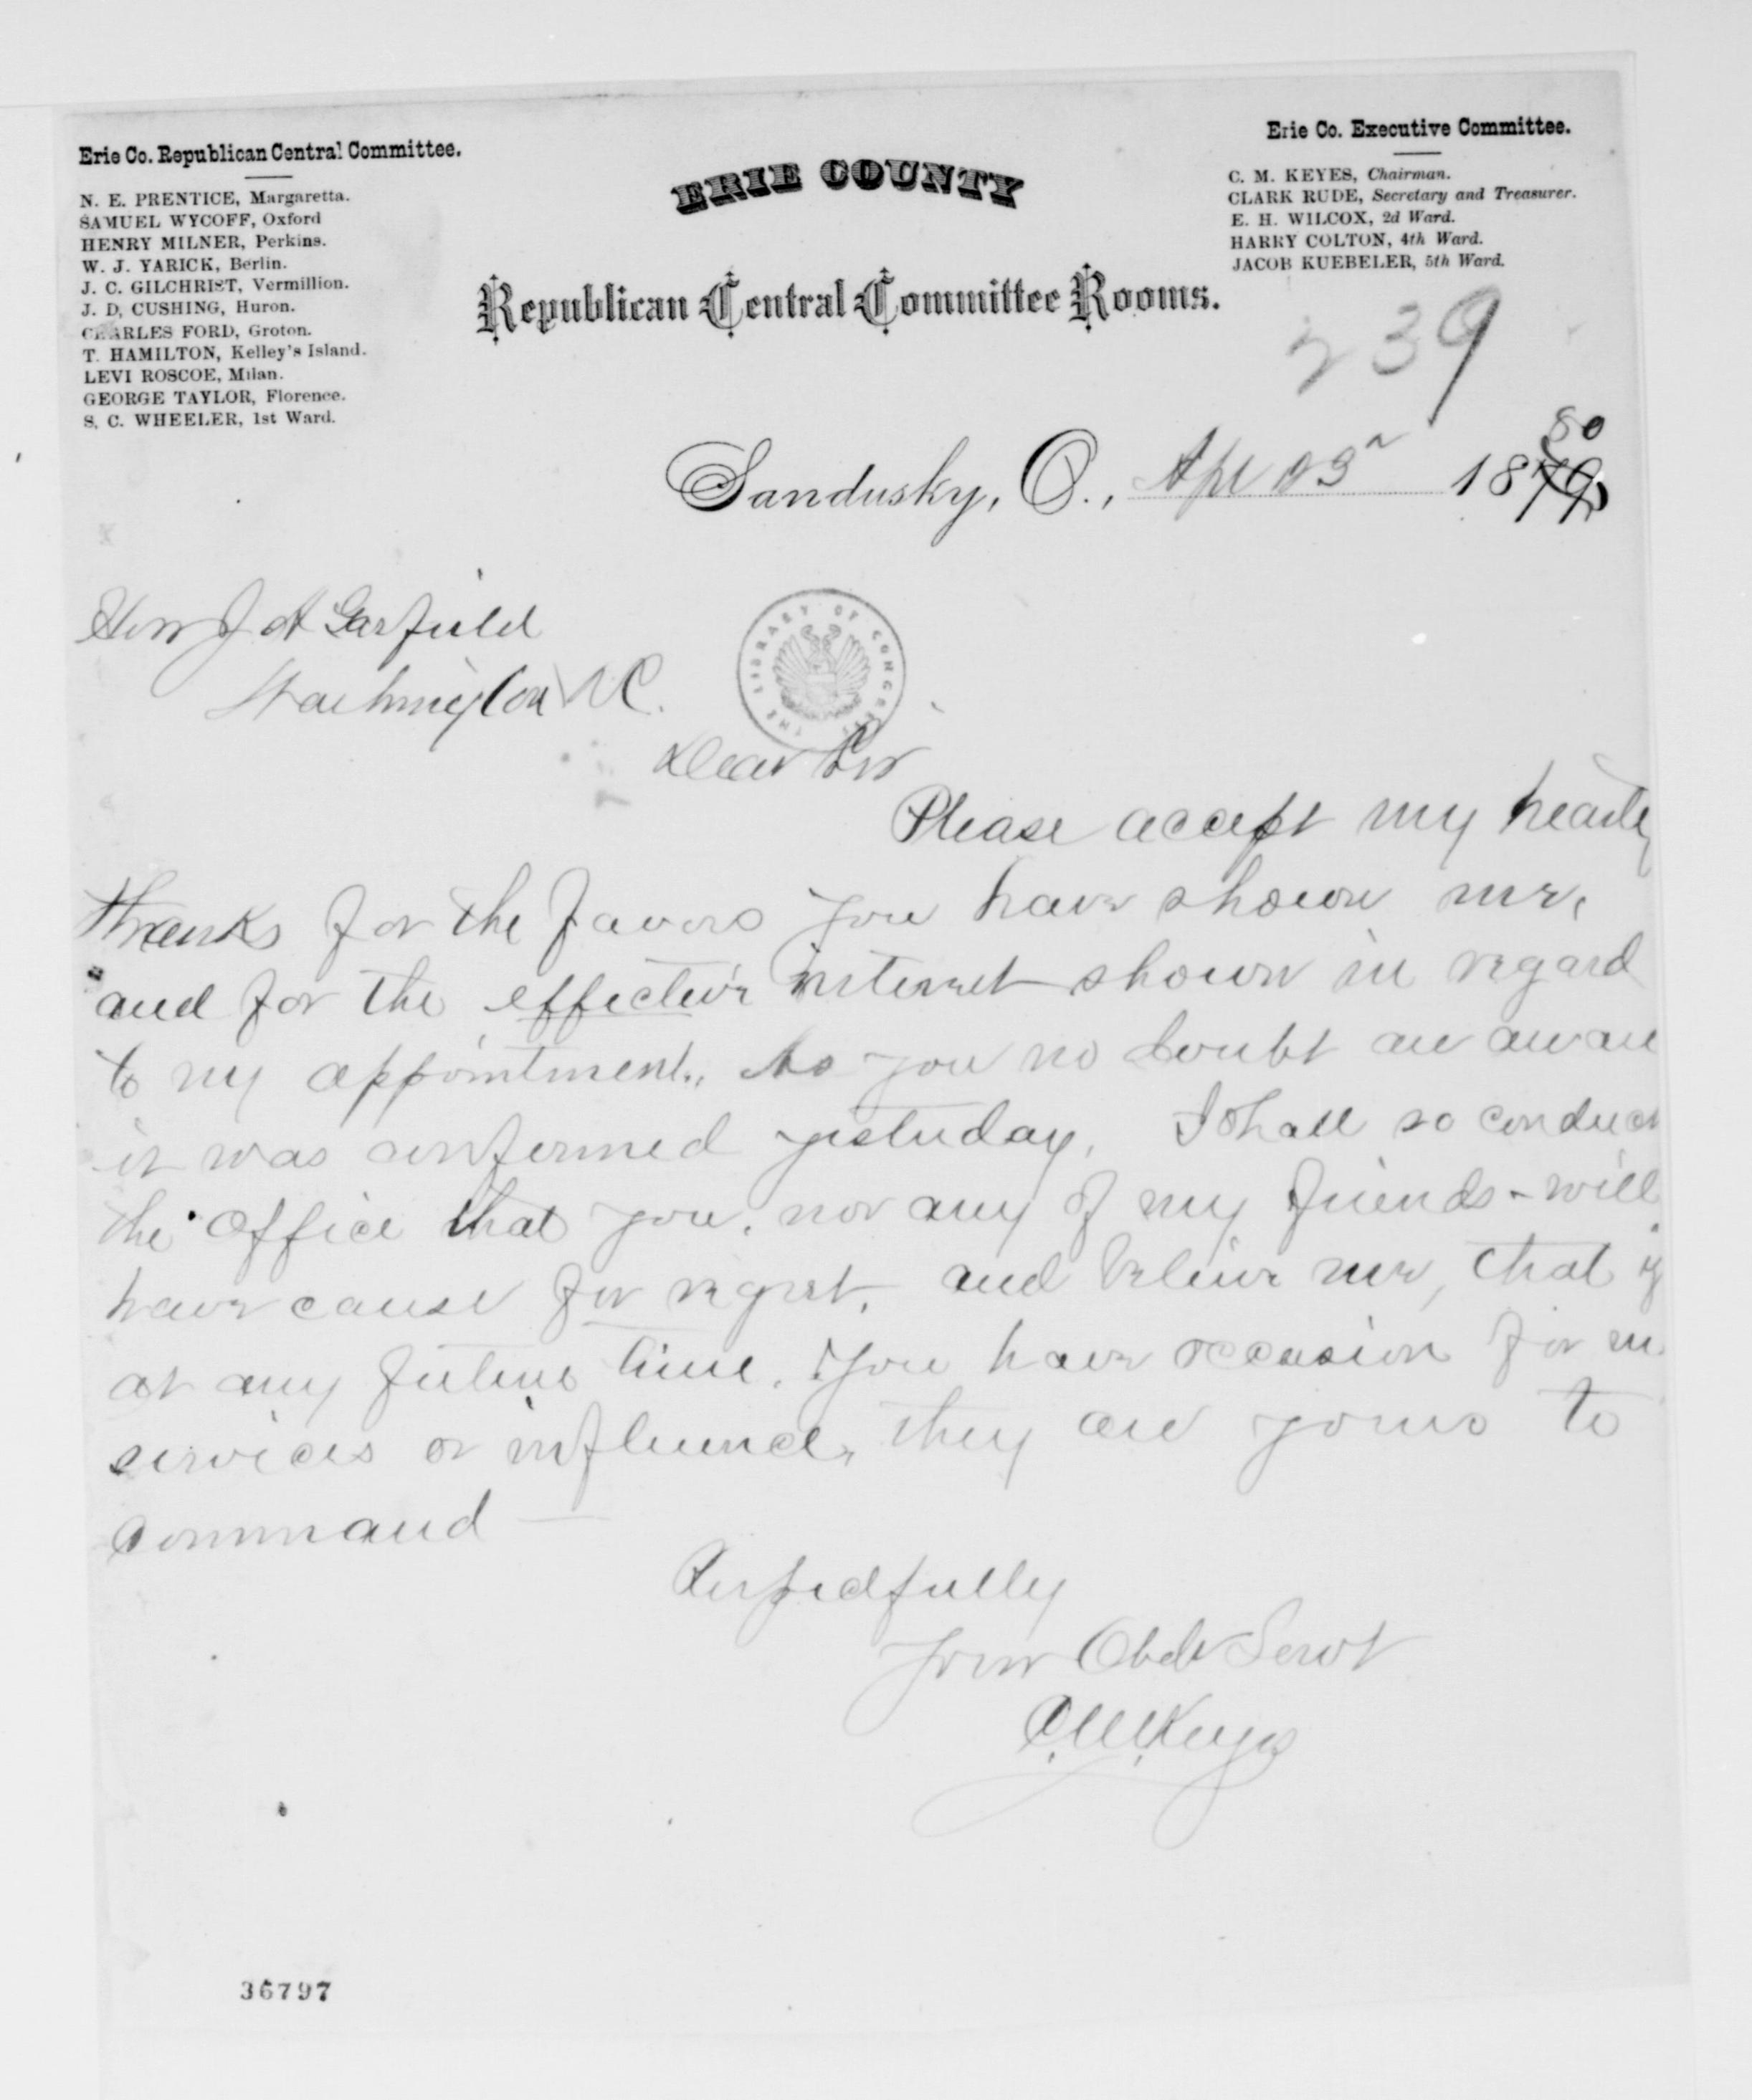 Erie Co. Republican Central Committee.
N. E. PRENTICE, Margaretta.
SAMUEL WYCOFF, Oxford
HENRY MILNER, Perkins.
W. J. YARICK, Berlin.
J. C. GILCHRIST, Vermillion.
J. D, CUSHING, Huron.
CHARLES FORD, Groton.
T. HAMILTON, Kelley's Island.
LEVI ROSCOE, Milan.
GEORGE TAYLOR, Florence.
S. C. WHEELER, 1st Ward.
ERIE COUNTY
Republican Central Committee Rooms.
Erie Co. Executive Committee.
C. M. KEYES, Chairman.
CLARK RUDE, Secretary and Treasurer.
E. H. WILCOX, 2d Ward.
HARRY COLTON, 4th Ward.
JACOB KUEBELER, 5th Ward.
239
80
Sandusky, O., Apl 1879
Hon J A Garfield
Washington DC.
THE LIBRARY OF CONGRESS
Dear Sir
Please accept my hearty
thanks for the favors you have shown me,
and for the effective interest shown in regard
to my appointment., As you no doubt are aware
it was confirmed yesterday, I shall so conduct
the office that you, nor any of my friends - will
have cause for regret, and believe me, that if
at any future time, you have occasion for m
services or influence, they are yours to
command —
Respectfully
Your Obdt Servt
C. M. Keyes
36797